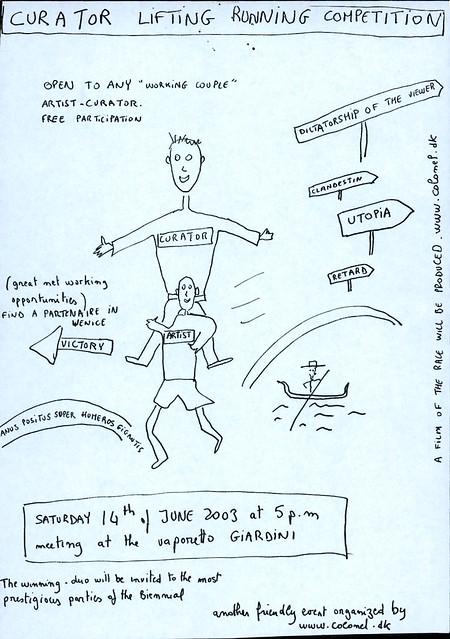 CURATOR LIFTING RUNNING COMPETITION
OPEN TO ANY "WORKING COUPLE"
ARTIST-CURATOR.
FREE PARTICIPATION
DICTATORSHIP OF THE VIEWER
CLANDESTIN
UTOPIA
RETARD
CURATOR
ARTIST
(great net working
opportunities)
FIND A PARTENAIRE IN
WENICE
VICTORY
NANUS POSITUS SUPER HUMEROS GIGANTIS
A FILM OF THE RACE WILL BE PRODUCED. www.colonel.dk
SATURDAY 14th of JUNE 2003 at 5 p.m
meeting at the vaporetto GIARDINI
The winning-duo will be invited to the most
prestigious parties of the Biennial
another friendly event organized by
www.colonel.dk